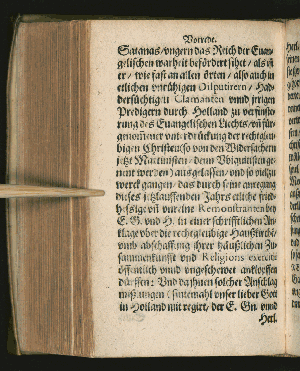 Vorrede.
Satanas / ungern das Reich der Euan-
gelischen warheit befördert sihet / als
er / wie fast an allen örten / also auch in
etlichen unrühigen Disputirern / Had-
dersüchtigen Clamanten unnd jrrigen
Predigern durch Holland zu verfinste-
rung des Euangelischen Liechts /
unterdrückung der rechtgleu-
bigen Christen von den Widersachern
jetzt Martinisten / denn Ubiquisten ge-
nent werden) ausgelassen / und so viel zu
werck gangen / das durch seine anregung
dieses jetzlauffenden Jahrs etliche fried-
hessige vnreine Remonstranten bey
E. G. und H. in einer schrifftlichen An-
klage über die rechtgleubige Haußkirche /
umb abschaffung ihrer häußlichen Zu-
sammenkunfft und Religions exercitii
öffentlich unnd ungeschewet anklopffen
dürffen: Und dahnen solcher Anschlag
mißlungen (sintemahl unser lieber Gott
in Holland mit regirt / der E. Gn. und
Herl.